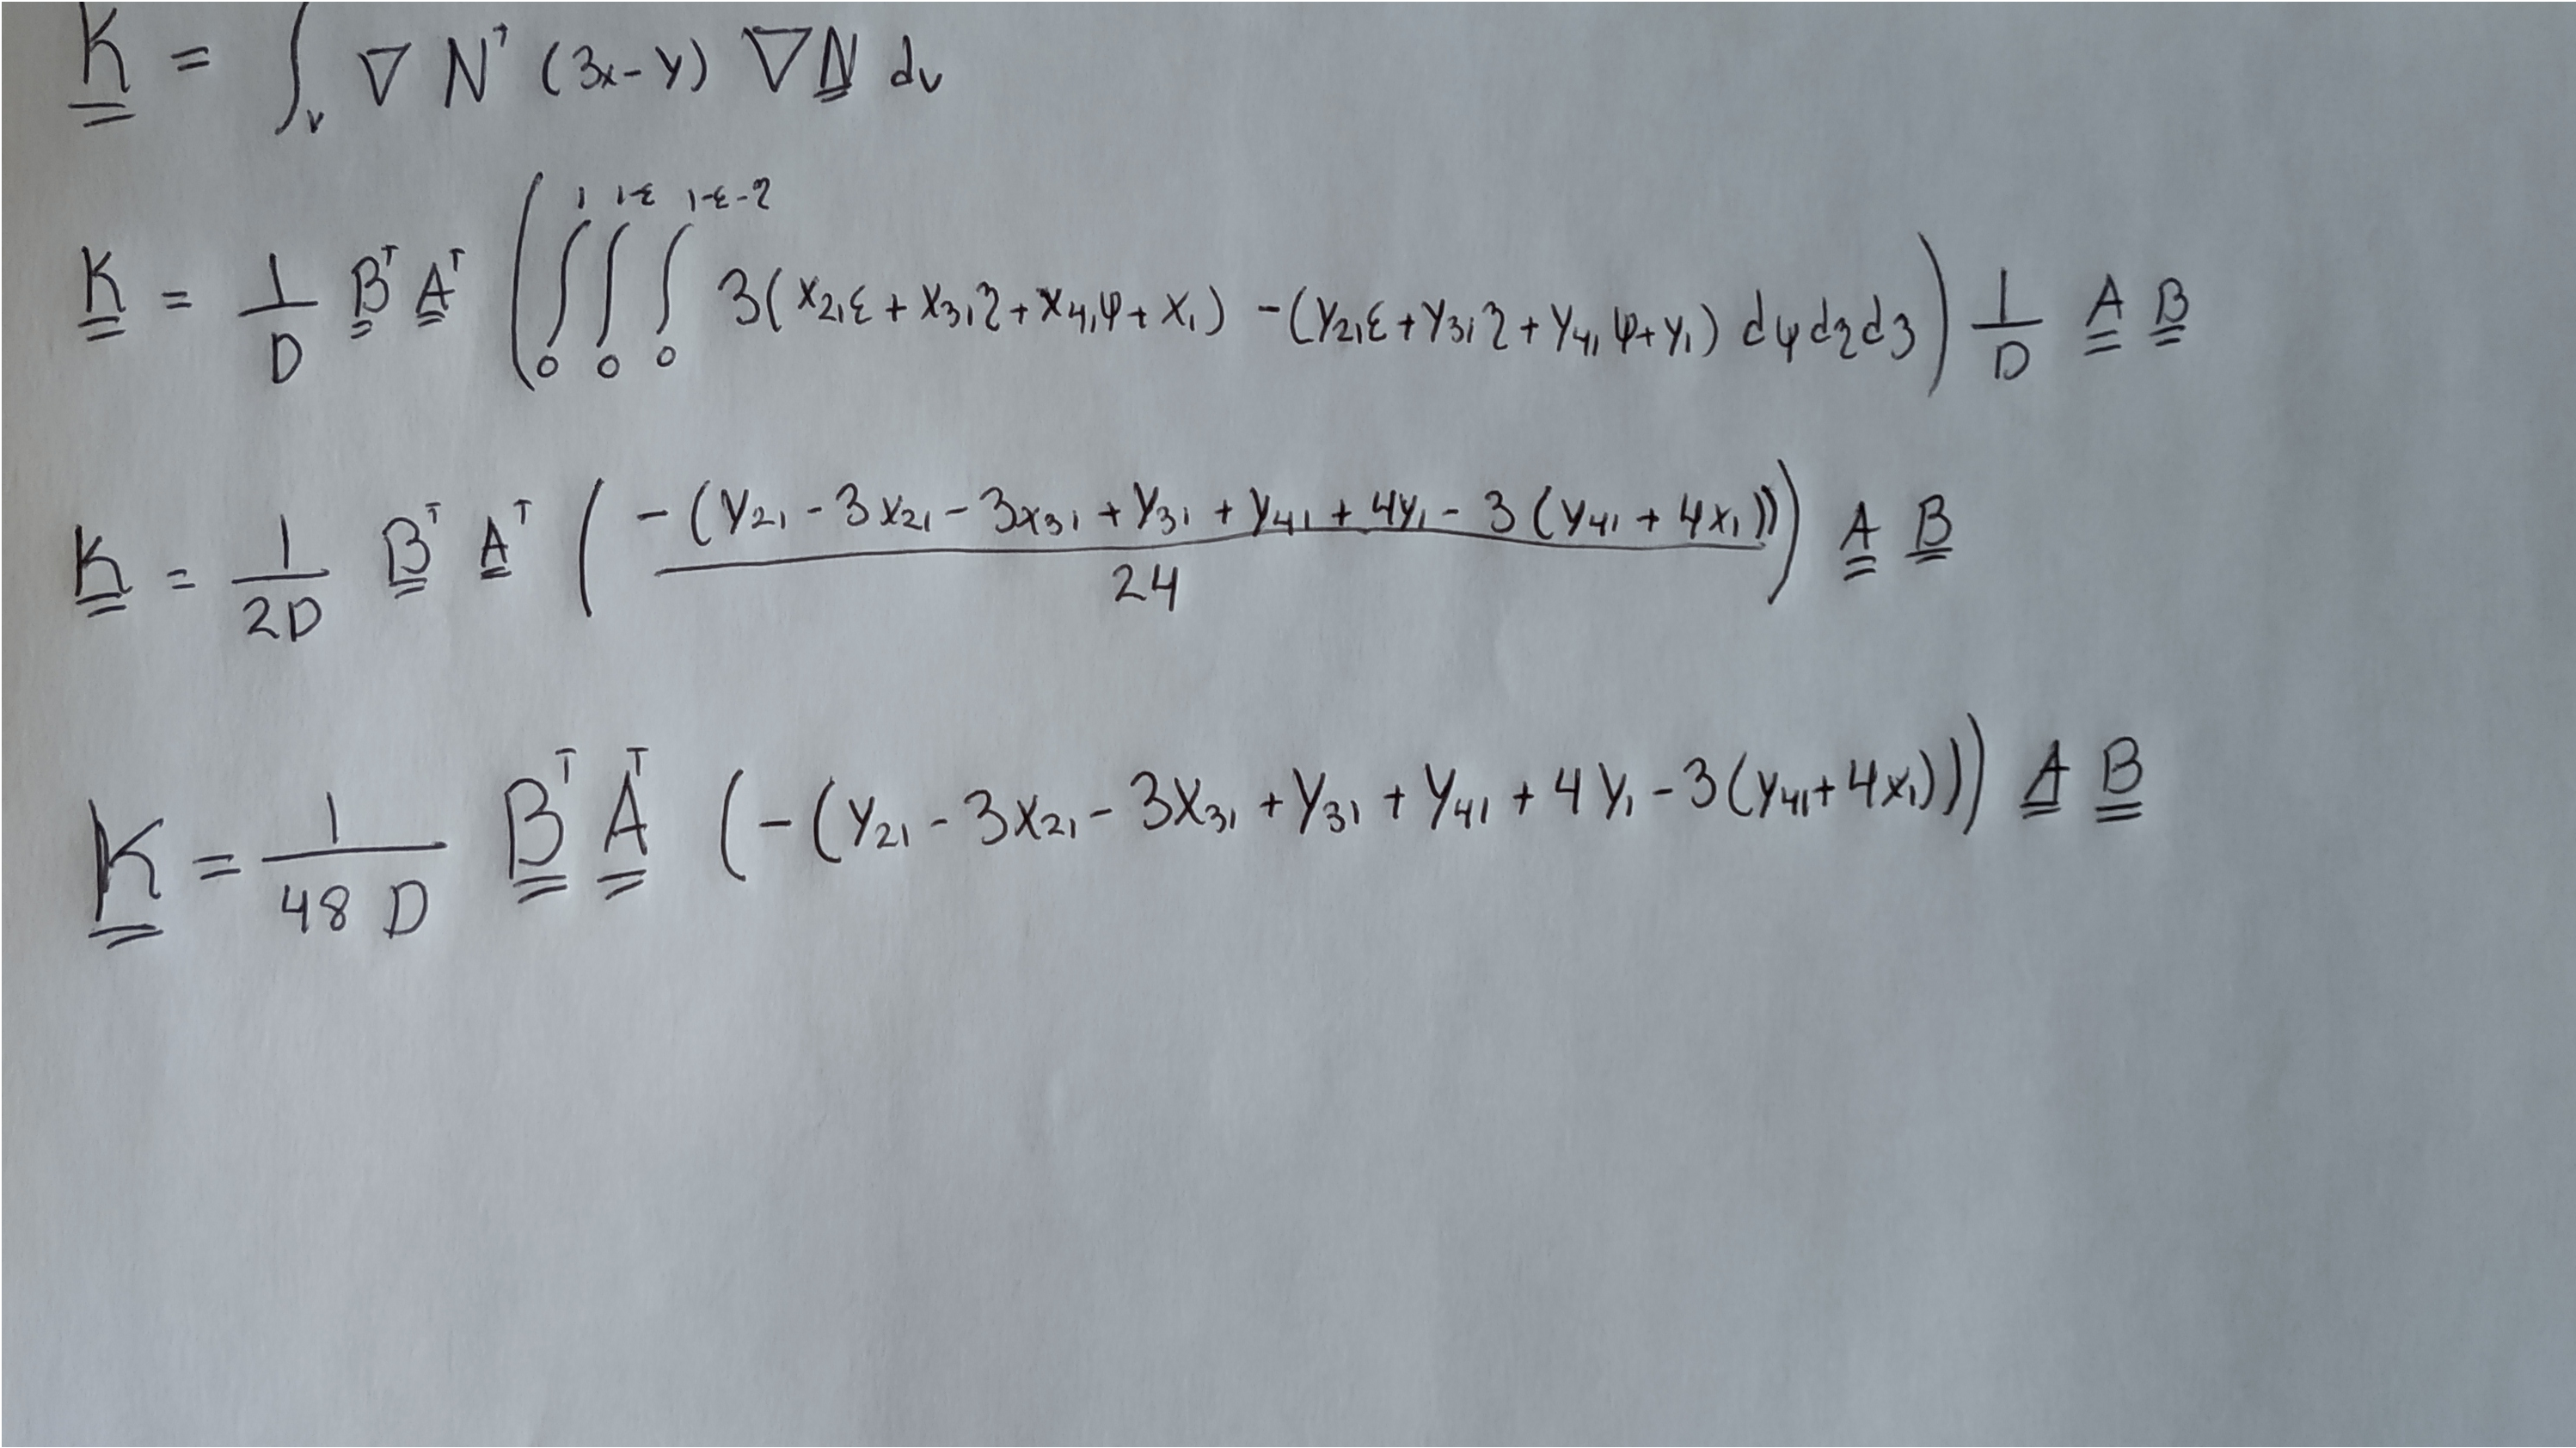 K = ∫_v ∇ N^T (3x-y) ∇N dv
K = 1/D B^T A^T ( ∫_0^1 ∫_0^{1-ε} ∫_0^{1-ε-η} 3(x_21 ε + x_31 η + x_41 φ + x_1) - (y_21 ε + y_31 η + y_41 φ + y_1) dφ dη d3 ) 1/D A B
K = 1/2D B^T A^T ( -(y_21 - 3x_21 - 3x_31 + y_31 + y_41 + 4y_1 - 3(y_41 + 4x_1)) / 24 ) A B
K = 1/48 D B^T A^T (-(y_21 - 3x_21 - 3x_31 + y_31 + y_41 + 4y_1 - 3(y_41 + 4x_1))) A B